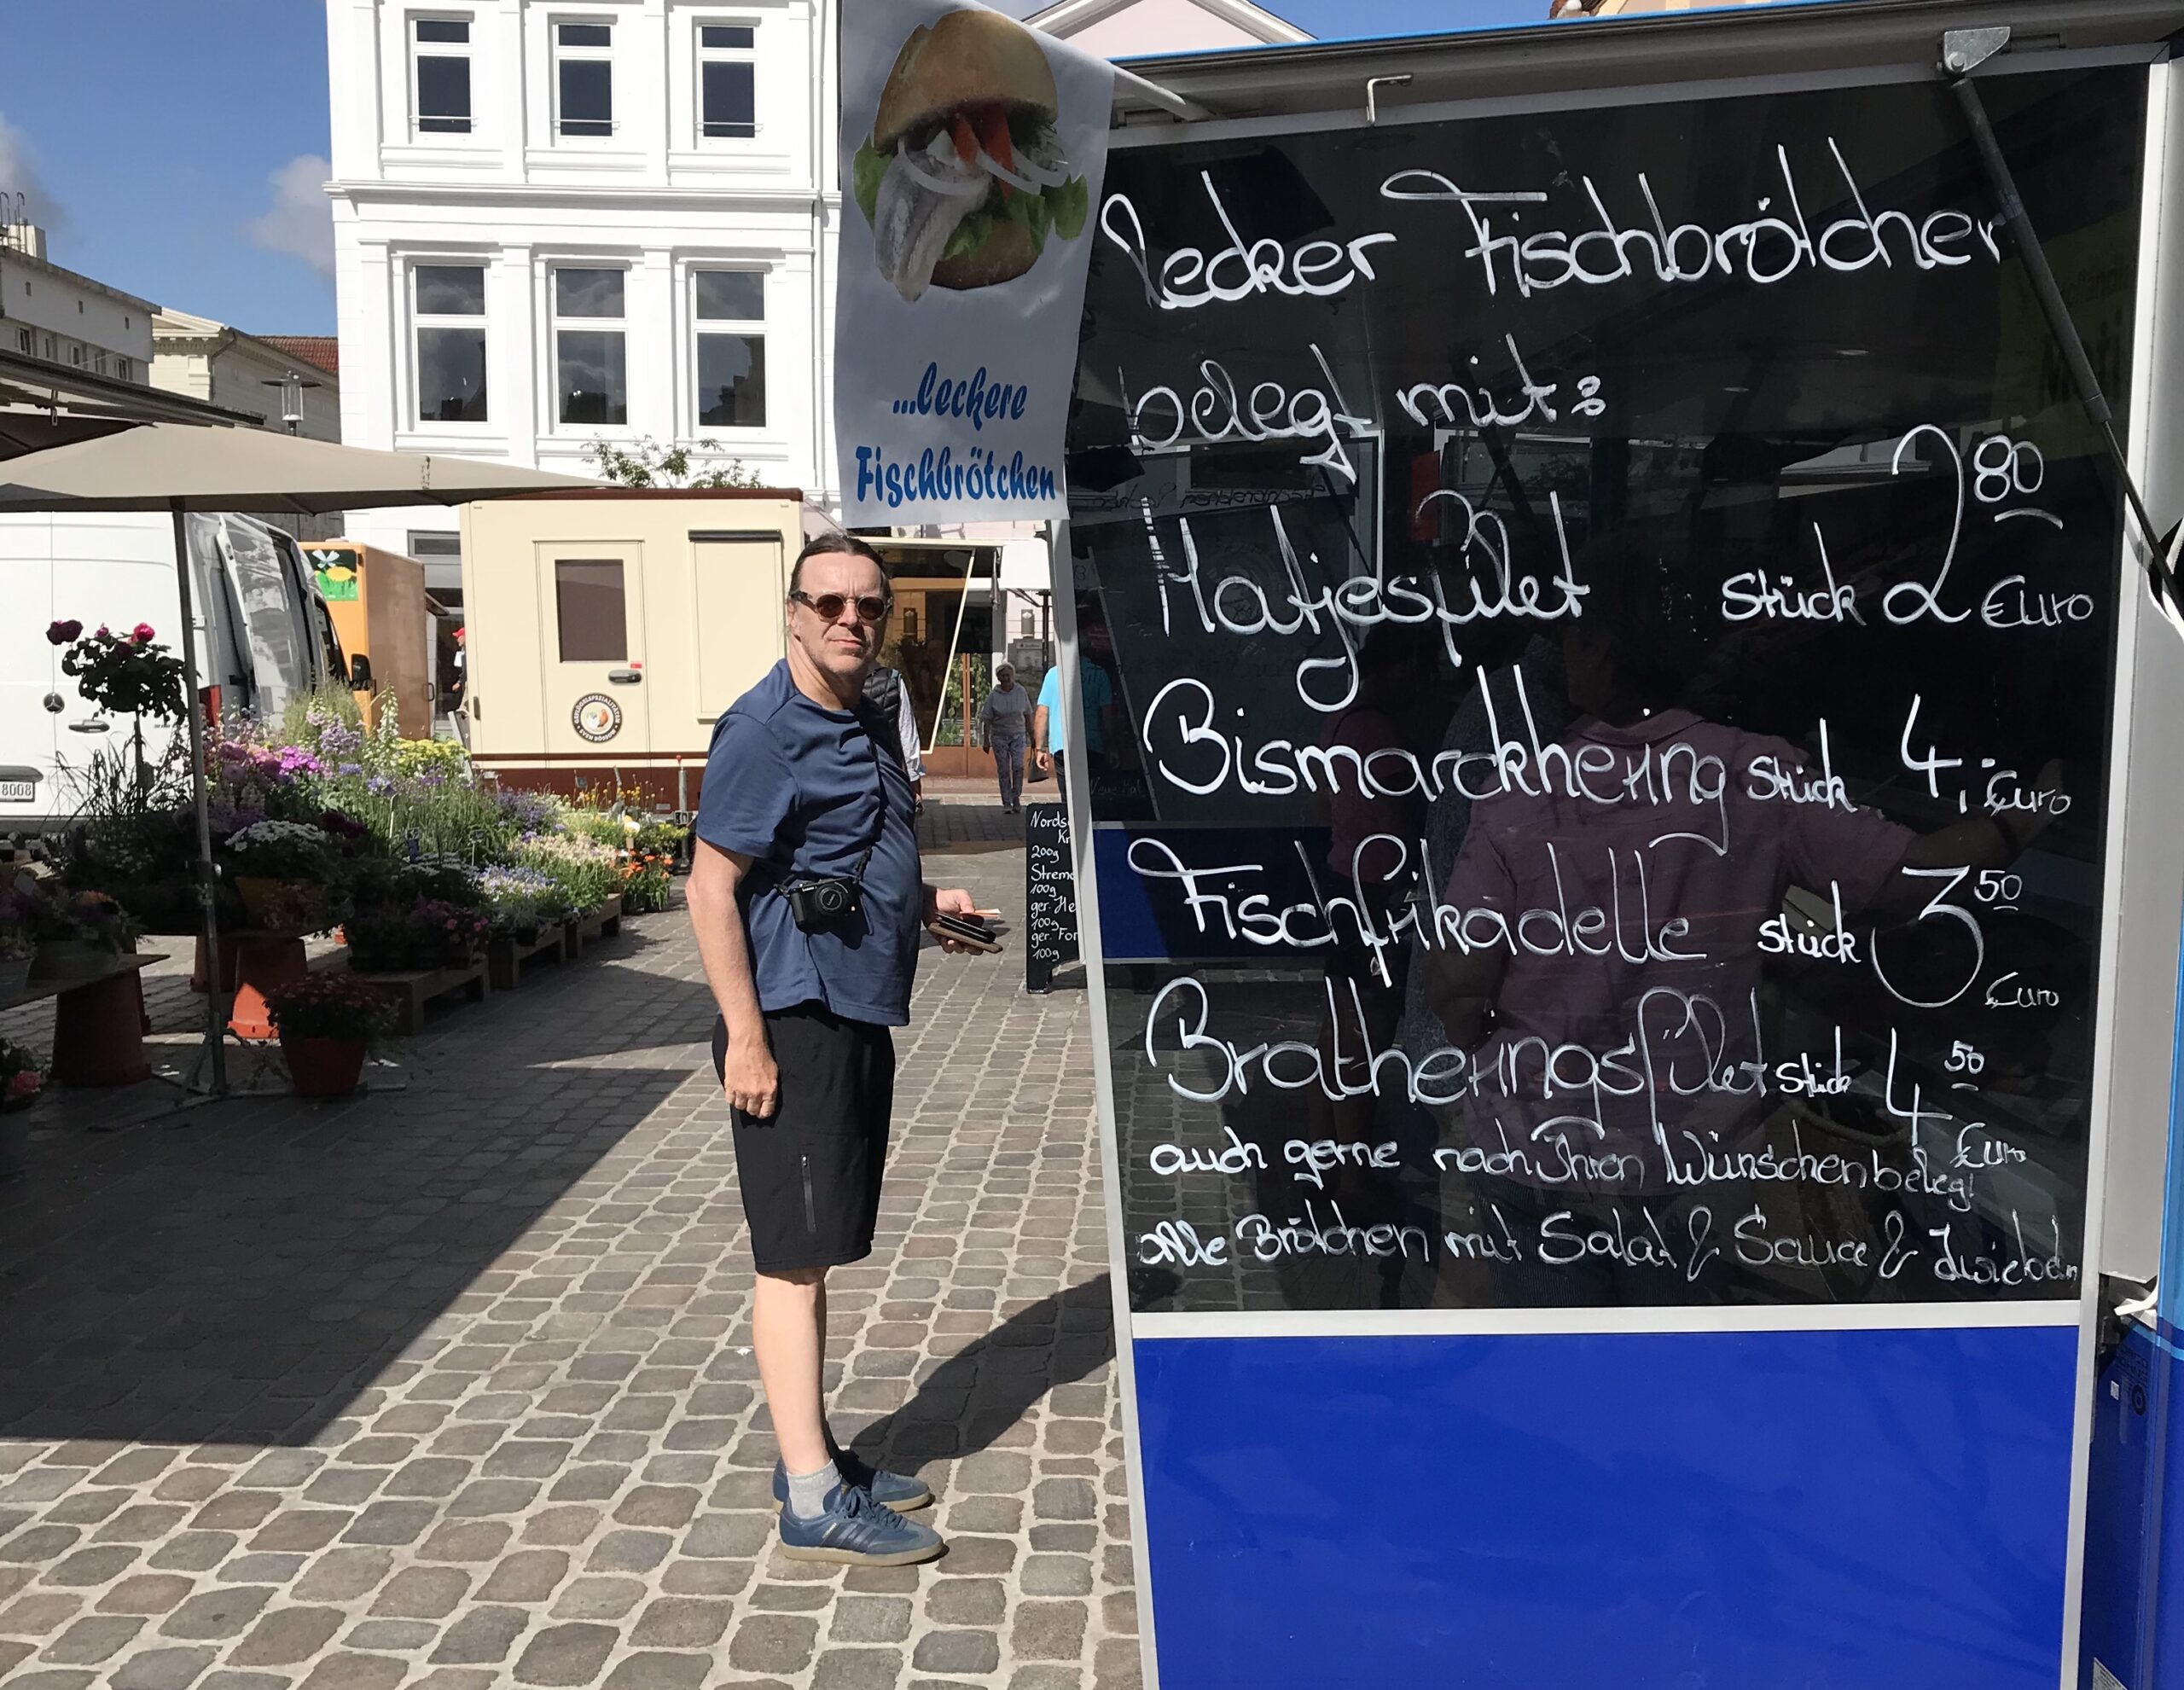 ...leckere
Fischbrötchen
lecker Fischbrötchen
belegt mit:
Matjesfilet Stück 2 80 Euro
Bismarckhering Stück 4,- Euro
Fischfrikadelle Stück 3 50 Euro
Bratheringsfilet Stück 4 50 Euro
auch gerne nach Ihren Wünschen belegt
alle Brötchen mit Salat & Sauce & Zwiebeln
200g
Streme
100g
ger. He
100g
ger. For
100g
8008